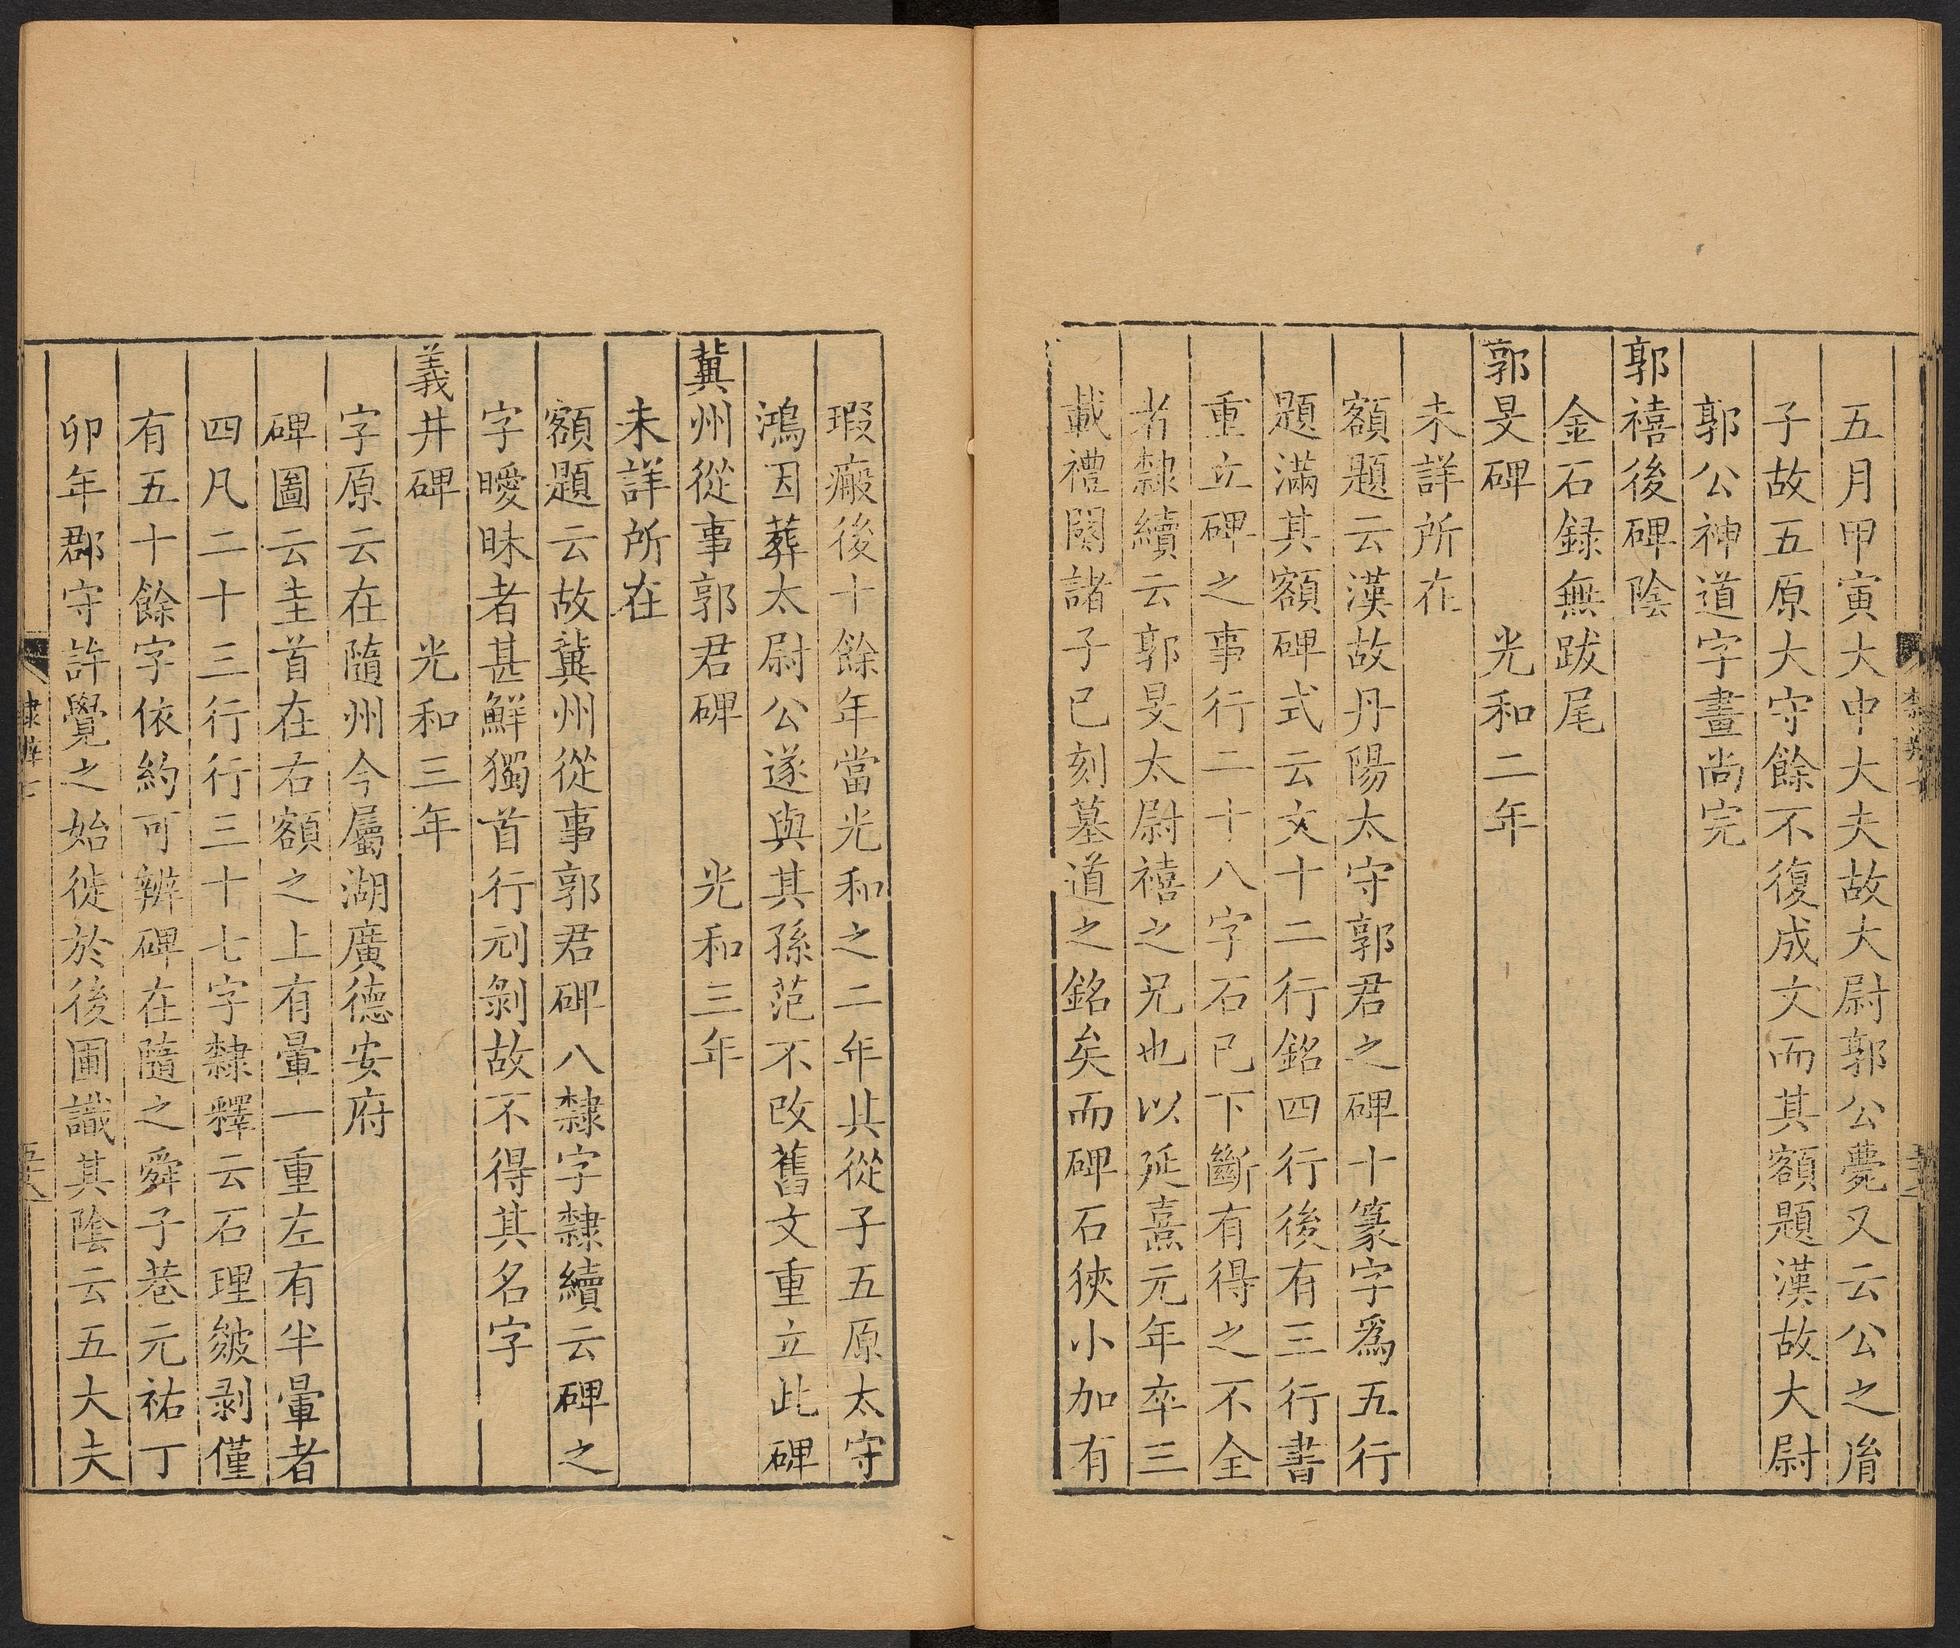 五月甲寅大中大夫故大尉郭公薨又云公之胄
子故五原大守餘不復成文而其額題漢故大尉
郭公神道字畫尚完
郭禧後碑陰
金石録無跋尾
郭旻碑 光和二年
未詳所在
額題云漢故丹陽太守郭君之碑十篆字爲五行
題滿其額碑式云文十二行銘四行後有三行書
重立碑之事行二十八字石已下斷有得之不全
者隸續云郭旻太尉禧之兄也以延熹元年卒三
載禮闋諸子已刻墓道之銘矣而碑石狹小加有
瑕癜後十餘年當光和之二年其從子五原太守
鴻因葬太尉公遂與其孫范不改舊文重立此碑
冀州從事郭君碑 光和三年
未詳所在
額題云故冀州從事郭君碑八隸字隸續云碑之
字曖昧者甚鮮獨首行刓剝故不得其名字
義井碑 光和三年
字原云在隨州今屬湖廣德安府
碑圖云圭首在右額之上有暈一重左有半暈者
四凡二十三行行三十七字隸釋云石理皴剥僅
有五十餘字依約可辨碑在隨之舜子巷元祐丁
卯年郡守許覺之始徙於後圃識其陰云五大夫
隸辨七